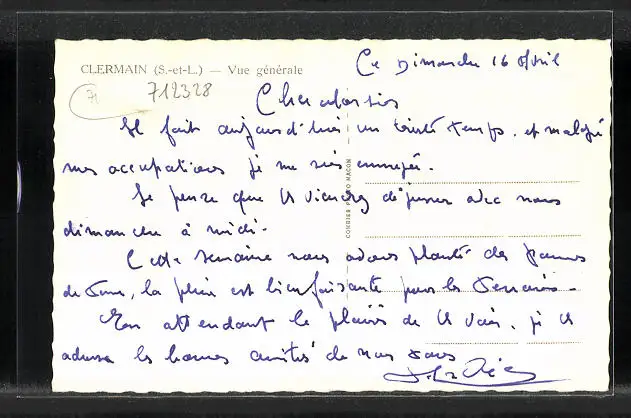 CLERMAIN (S.-et-L.) — Vue générale
Ce Dimanche 16 Avril
71
712328
Cher
Il fait aujourd'hui un temps, et malgré
mes occupations je me suis ennuyée.
Je pense que Vs viendrez déjeuner avec nous
dimanche à midi.
COMBIER MACON
Cette semaine nous avons planté des pommes
de terre, la pluie est bienfaisante pour les
En attendant le plaisir de Vs voir, je Vs
adresse les bonnes amitiés de nous tous